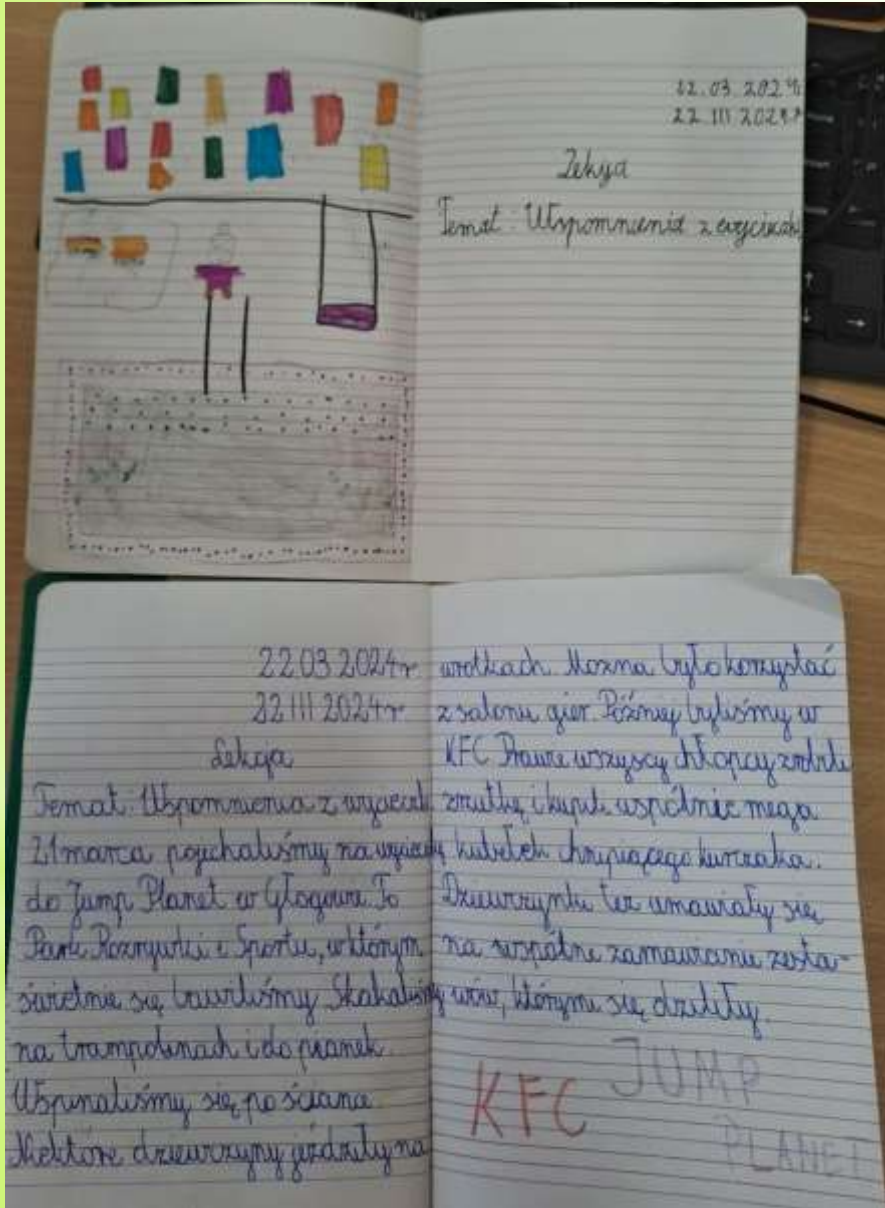 22.03.2024r
22 III 2024r
Lekcja
Temat: Wspomnienia z wycieczki
22.03.2024r
22 III 2024r
Lekcja
Temat: Wspomnienia z wycieczki
21 marca pojechaliśmy na wycieczkę
do Jump Planet w Głogowie. To
Park Rozrywki i Sportu, w którym
świetnie się bawiliśmy. Skakaliśmy
na trampolinach i do pianek.
Wspinaliśmy się po ściance.
Niektóre dziewczyny jeździły na
wrotkach. Można było korzystać
z salonu gier. Później byliśmy w
KFC Prawie wszyscy chłopcy zrobili
zrzutkę i kupili wspólnie mega
kubełek chrupiącego kurczaka.
Dziewczynki też umawiały się
na wspólne zamawianie zesta-
wów, którymi się dzieliły.
KFC
JUMP
PLANET